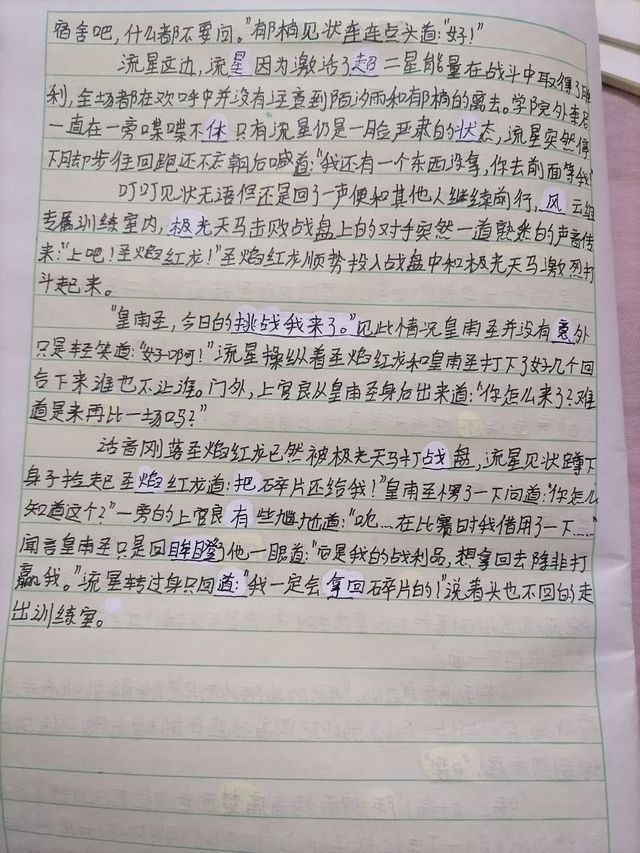 宿舍吧，什么都不要问。"郁楠见状连连点头道："好！"
流星这边，流星因为激活了超二星能量在战斗中取得了胜
利，全场都在欢呼中并没有注意到陌汐雨和郁楠的离去。学院外李
一直在一旁喋喋不休只有流星仍是一脸严肃的状态，流星突然停
下脚步往回跑还不忘朝后喊道："我还有一个东西没拿，你去前面等我！
叮叮见状无语但还是回了一声便和其他人继续前行，风云组
专属训练室内，极光天马击败战盘上的对手突然一道熟悉的声音传
来："上吧！圣焰红龙！"圣焰红龙顺势投入战盘中和极光天马激烈打
斗起来。
"皇甫圣，今日的挑战我来了。"见此情况皇甫圣并没有意外
只是轻笑道："好啊！"流星操纵着圣焰红龙和皇甫圣打下了好几个回
合下来谁也不让谁。门外，上官良从皇甫圣身后出来道："你怎么来了？难
道是来再比一场吗？"
话音刚落圣焰红龙已然被极光天马打战盘，流星见状蹲下
身子捡起圣焰红龙道："把碎片还给我！"皇甫圣愣了一下问道："你怎么
知道这个？"一旁的上官良有些尴尬道："呃……在比赛时我借用了一下……"
闻言皇甫圣只是回眸瞪了他一眼道："它是我的战利品，想拿回去除非打
赢我。"流星转过身只回道："我一定会拿回碎片的！"说着头也不回的走
出训练室。